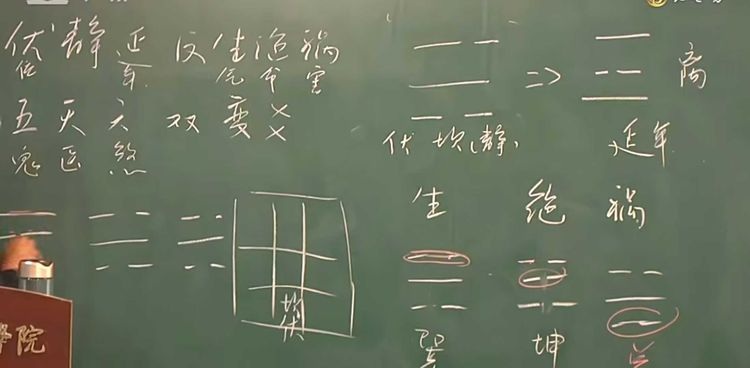 伏静延 反生绝祸
位 年 气命害
五天六 双变××
鬼医煞
=> 离
伏坎(静) 延年
生 绝 祸
坎
伏
巽 坤 兑
学院